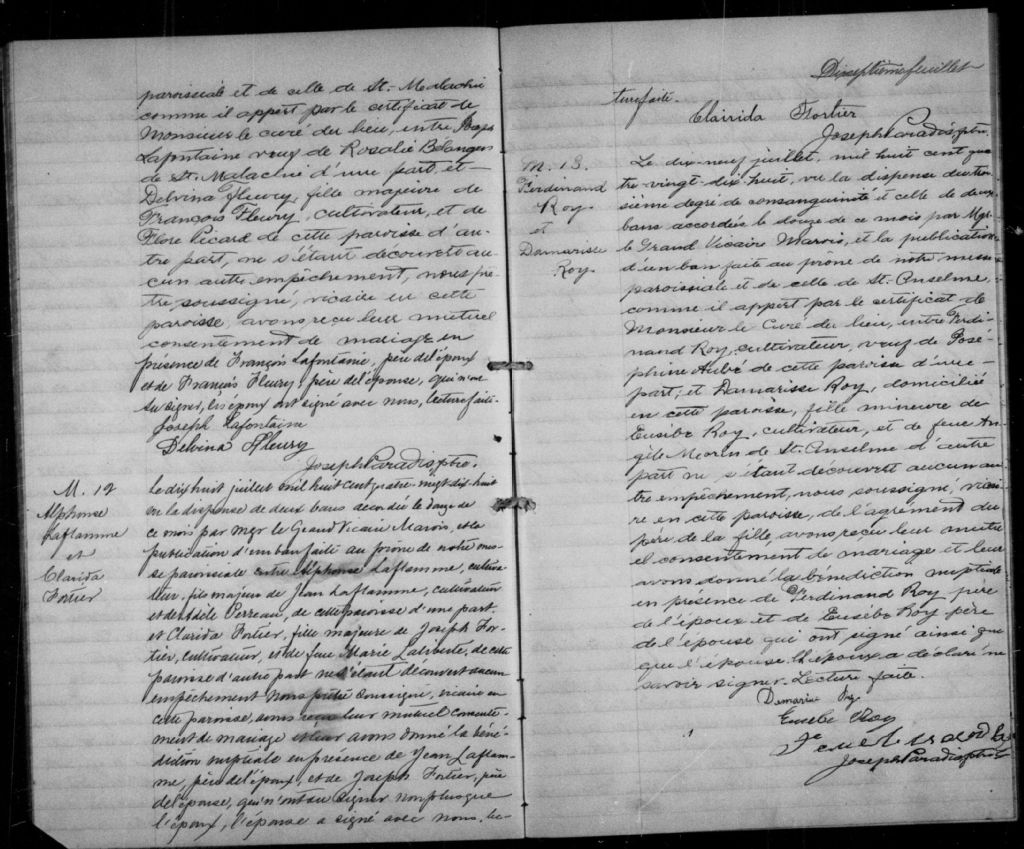 paroissiale et de celle de St. Malachie
comme il appert par le certificat de
Monsieur le curé du lieu, entre Joseph
Lafontaine veuf de Rosalie Bélanger
de St. Malachie d'une part, et
Delvina Fleury, fille majeure de
François Fleury, cultivateur, et de
Flore Picard de cette paroisse d'au-
tre part, ne s'étant découvert au-
cun autre empêchement, nous prê-
tre soussigné, vicaire en cette
paroisse, avons reçu leur mutuel
consentement de mariage en
présence de François Lafontaine, père de l'époux
et de François Fleury, père de l'épouse, qui n'ont
su signer, les époux ont signé avec nous, lecture faite.
Joseph Lafontaine
Delvina Fleury
Joseph Paradis, ptre.
M. 12
Alphonse
Laflamme
et
Clarida
Fortier
Le dix huit juillet mil huit cent quatre-vingt-dix-huit
vu la dispense de deux bans accordée le douze de
ce mois par Mgr le Grand Vicaire Marois, et la
publication d'un ban faite au prône de notre mes-
se paroissiale entre Alphonse Laflamme, cultiva-
teur, fils majeur de Jean Laflamme, cultivateur
et de Adèle Perreau, de cette paroisse d'une part,
et Clarida Fortier, fille majeure de Joseph For-
tier, cultivateur, et de feue Marie de cette
paroisse d'autre part ne s'étant découvert aucun
empêchement nous prêtre soussigné, vicaire en
cette paroisse, avons reçu leur mutuel consente-
ment de mariage et leur avons donné la béné-
diction nuptiale en présence de Jean Laflam-
me, père de l'époux, et de Joseph Fortier, père
de l'épouse, qui n'ont su signer non plus que
l'époux, l'épouse a signé avec nous. lec-
Dixseptième feuillet
ture faite.
Clairida Fortier
Joseph Paradis, ptre.
M. 13.
Ferdinand
Roy
et
Damarisse
Roy
Le dix-neuf juillet, mil huit cent qua-
tre-vingt-dix-huit, vu la dispense du troi-
sième degré de consanguinité et celle de deux
bans accordées le douze de ce mois par Mgr.
le Grand Vicaire Marois, et la publication
d'un ban faite au prône de notre messe
paroissiale et de celle de St. Anselme,
comme il appert par le certificat de
Monsieur le Curé du lieu, entre Ferdi-
nand Roy, cultivateur, veuf de José-
phine Aubé de cette paroisse d'une
part, et Damarisse Roy, domiciliée
en cette paroisse, fille mineure de
Eusèbe Roy, cultivateur, et de feue An-
gèle Morin de St. Anselme d'autre
part ne s'étant découvert aucun au-
tre empêchement, nous soussigné, vicai-
re en cette paroisse, de l'agrément du
père de la fille, avons reçu leur mutu-
el consentement de mariage et leur
avons donné la bénédiction nuptiale
en présence de Ferdinand Roy père
de l'époux et de Eusèbe Roy père
de l'épouse qui ont signé ainsi que
que l'épouse. L'époux a déclaré ne
savoir signer. Lecture faite.
Demaria Roy
Eusebe Roy
Joseph Paradis, ptre